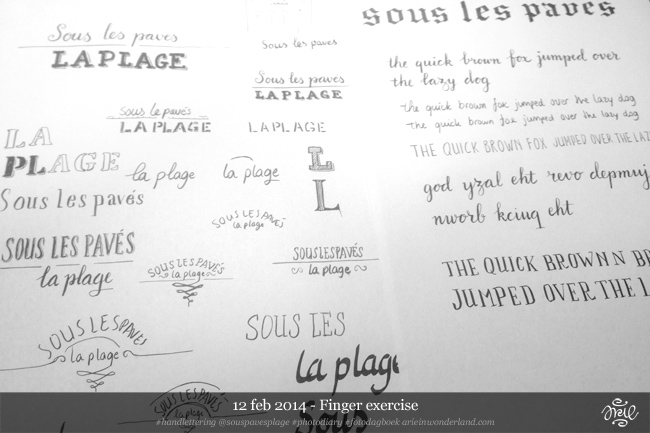 Sous les paves
LAPLAGE
Sous le pavés
LAPLAGE
LA
PLAGE
la plage
Sous les pavés
SOUS LES PAVÉS
la plage
SOUS LES PAVÉS
la plage
SOUS LES PAVÉS
la plage
sous les paves
Sous les paves
LAPLAGE
LAPLAGE
la plage
L
L
SOUS LES PAVÉS
la plage
SOUSLESPAVÉS
la plage
SOUS LES
la plage
SOUS LES PAVÉS
la plage
sous
sous les paves
the quick brown fox jumped over
the lazy dog
the quick brown fox jumped over the lazy dog
the quick brown fox jumped over the lazy dog
THE QUICK BROWN FOX JUMPED OVER THE LAZ
god yzal eht revo depmuj
nworb kciuq eht
THE QUICK BROWN N BR
JUMPED OVER THE L
12 feb 2014 - Finger exercise
#handlettering @souspavesplage #photodiary #fotodagboek arieinwonderland.com
Arie